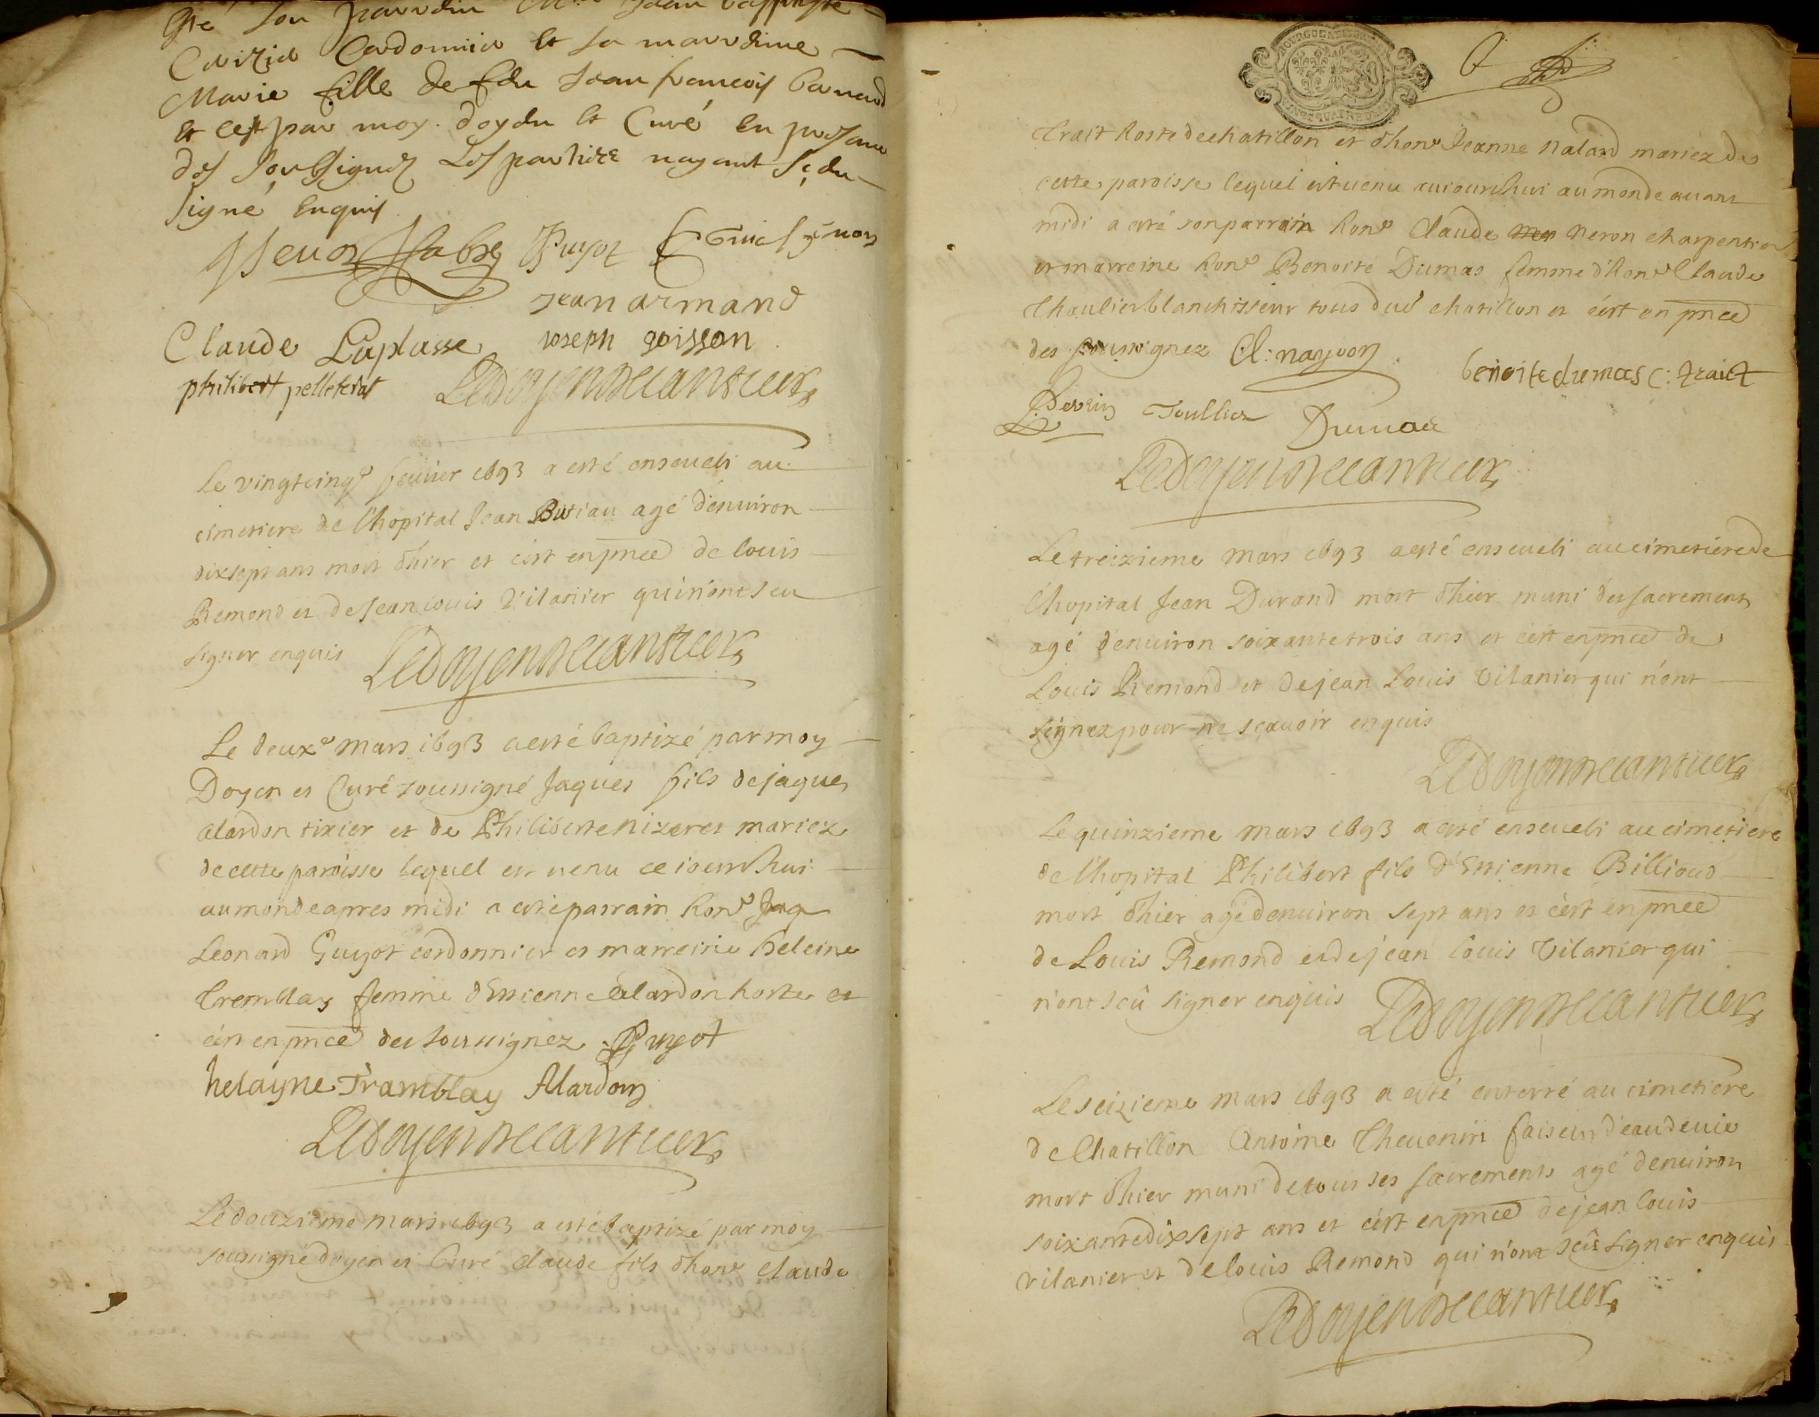 esté son parrdin Jean baptiste
Cordonnier et sa marrdine
Marie fille de feu Jean francois
et cest par moy doyen et Curé en presance
des soubsignez Les parties nayant sçeu
signé enquis
Puyot
Jean armand
Claude Laplasse joseph goisson
philibert pelleterat Ledoyendecantuer
Le vingtcinqe feuvier 1693 a esté enseueli au
cimetiere de l'hopital Jean Butiau agé d'enuiron
dixsept ans mort d'hier et c'est en pnce de louis
Remond et de Jean louis Vilanier qui n'ont sceu
signer enquis Ledoyendecantuer
Le deuxe mars 1693 a esté baptizé par moy
Doyen et Curé soussigné Jaques fils de jaques
alardon tixier et de Philiberte Nizeret mariez
de cette paroisse lequel est venu ce iourd'hui
au monde apres midi a esté parrain hone Jaq
Leonard Guyot cordonnier et marreine heleine
Tremblay femme d'Estienne alardon hoste et
c'est en pnce des soussignez Puyot
helayne Tramblay Alardon
Ledoyendecantuer
Le douzieme mars 1693 a esté baptizé par moy
soussigné doyen et Curé claude fils d'hone claude
Trait hoste de chatillon et d'hone Jeanne nalard mariez de
cette paroisse lequel est venu auiourd'hui au monde auant
midi a esté son parrain hone Claude neron charpentier
et marreine hone Benoite Dumas femme d'hone Claude
Thaulier blanchisseur tous dud chatillon et c'est en pnce
des soussignez Cl: nayron benoite dumas C: traict
Perrin Toullier Dumas
Ledoyendecantuer
Le treizieme mars 1693 a esté enseueli au cimetiere de
l'hopital Jean Durand mort d'hier muni des sacrements
agé d'enuiron soixante trois ans et c'est en pnce de
Louis Remond et de jean Louis Vilanier qui n'ont
signez pour ne scauoir enquis
Ledoyendecantuer
Le quinzieme mars 1693 a esté enseueli au cimetiere
de l'hopital Philibert fils d'Estienne Billioud
mort d'hier agé d'enuiron sept ans et c'est en pnce
de Louis Remond et de jean louis Vilanier qui
n'ont sçû signer enquis Ledoyendecantuer
Le seizieme mars 1693 a esté enterré au cimetiere
de Chatillon Antoine Theuenin faiseur d'eau de uie
mort d'hier muni de tous ses sacrements agé d'enuiron
soixante dix sept ans et c'est en pnce de jean louis
vilanier et de louis Remond qui n'ont sçû signer enquis
Ledoyendecantuer